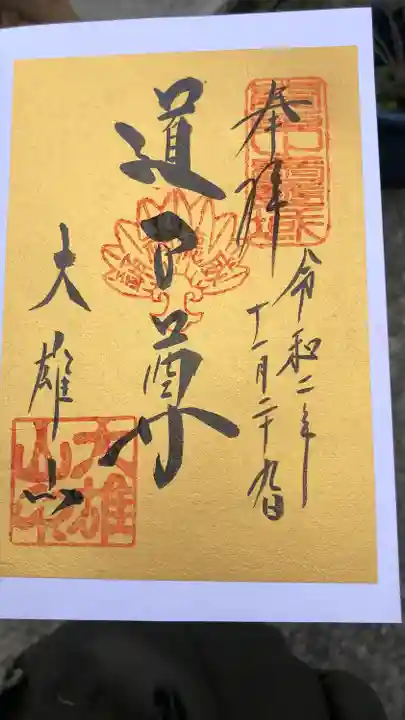 奉拝
令和二年
十一月二十九日
道了尊
大雄山
大雄
山印